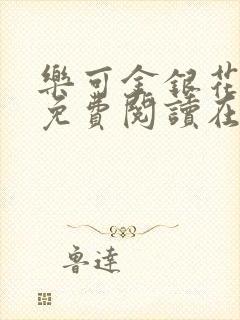 樂可金銀花
免費閱讀在
魯達